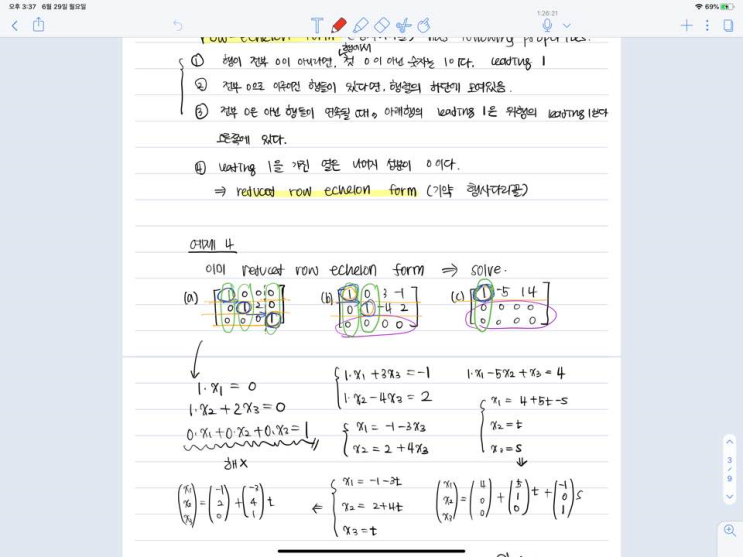 오후 3:37 6월 29일 월요일
69%
1:26:21
row-echelon form has following properties.
① 행이 전부 0이 아니라면, 첫 0이 아닌 숫자는 1이다. leading 1
② 전부 0으로 이루어진 행들이 있다면, 행렬의 하단에 모여있음.
③ 전부 0은 아닌 행들이 연속될 때, 아래행의 leading 1은 위행의 leading 1보다
오른쪽에 있다.
④ leading 1을 가진 열은 나머지 성분이 0이다.
⇒ reduced row echelon form (기약 행사다리꼴)
예제 4
이미 reduced row echelon form ⇒ solve.
(a) [1 0 0 0 (b) [1 0 3 -1 (c) [1 -5 1 4
0 1 2 0 0 1 -4 2 0 0 0 0
0 0 0 1] 0 0 0 0] 0 0 0 0]
1·x₁ = 0
1·x₂ + 2x₃ = 0
0·x₁+0·x₂+0·x₃ = 1
해X
1·x₁ + 3x₃ = -1
1·x₂ - 4x₃ = 2
x₁ = -1-3x₃
x₂ = 2+4x₃
x₁ = -1-3t
x₂ = 2+4t
x₃ = t
(x₁ x₂ x₃) = (-1 2 0) + (-3 4 1) t ⇐
1·x₁ - 5x₂ + x₃ = 4
x₁ = 4+5t-s
x₂ = t
x₃ = s
(x₁ x₂ x₃) = (4 0 0) + (5 1 0) t + (-1 0 1) s
3
9